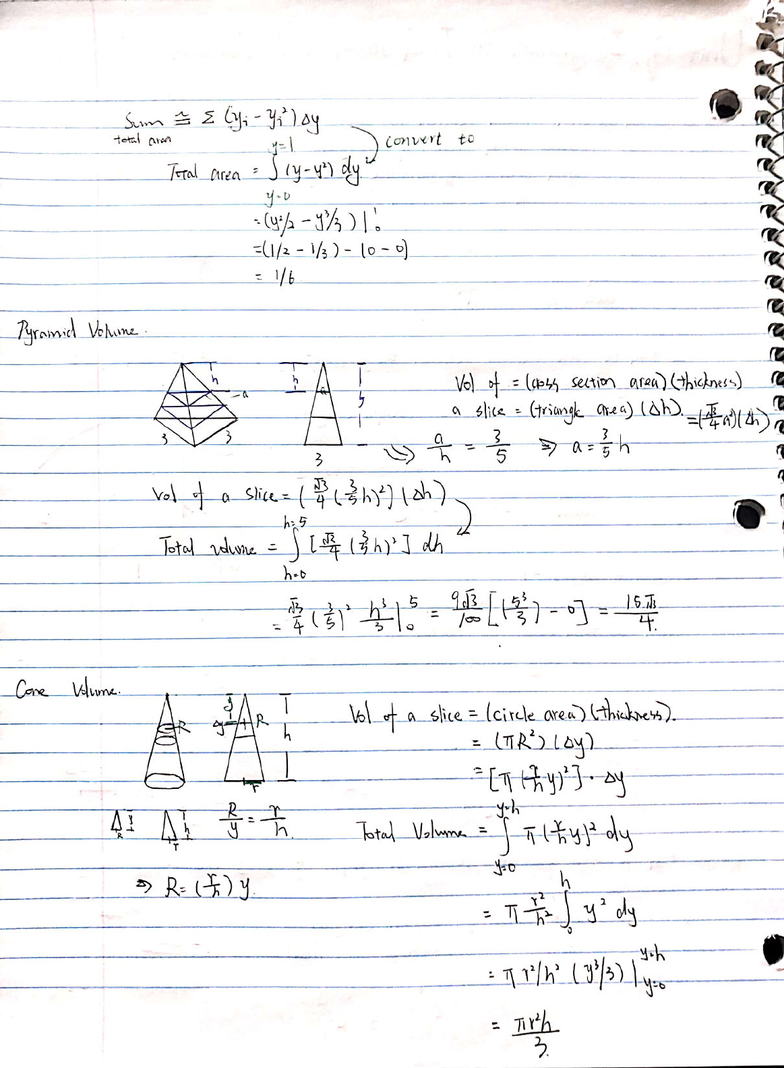 Sum ≅ Σ (yᵢ - yᵢ²) Δy
total area
convert to
Total area = ∫_{y=0}^{y=1} (y-y²) dy
= (y²/2 - y³/3) |₀¹
= (1/2 - 1/3) - (0 - 0)
= 1/6
Pyramid Volume.
h a 3 3
h a 5 3
Vol of = (cross section area) (thickness)
a slice = (triangle area) (Δh). = (√3/4 a²) (Δh)
a/h = 3/5 ⇒ a = 3/5 h
Vol of a slice = (√3/4 (3/5 h)²) (Δh)
Total volume = ∫_{h=0}^{h=5} [√3/4 (3/5 h)²] dh
= √3/4 (3/5)² h³/3 |₀⁵ = 9√3/100 [(5³/3) - 0] = 15√3/4.
Cone Volume.
R
y Δy R h r
Vol of a slice = (circle area) (thickness).
= (πR²) (Δy)
= [π (r/h y)²] · Δy
y R h r
R/y = r/h.
Total Volume = ∫_{y=0}^{y=h} π (r/h y)² dy
⇒ R = (r/h) y.
= π r²/h² ∫₀ʰ y² dy
= π r²/h² (y³/3) |_{y=0}^{y=h}
= πr²h/3.